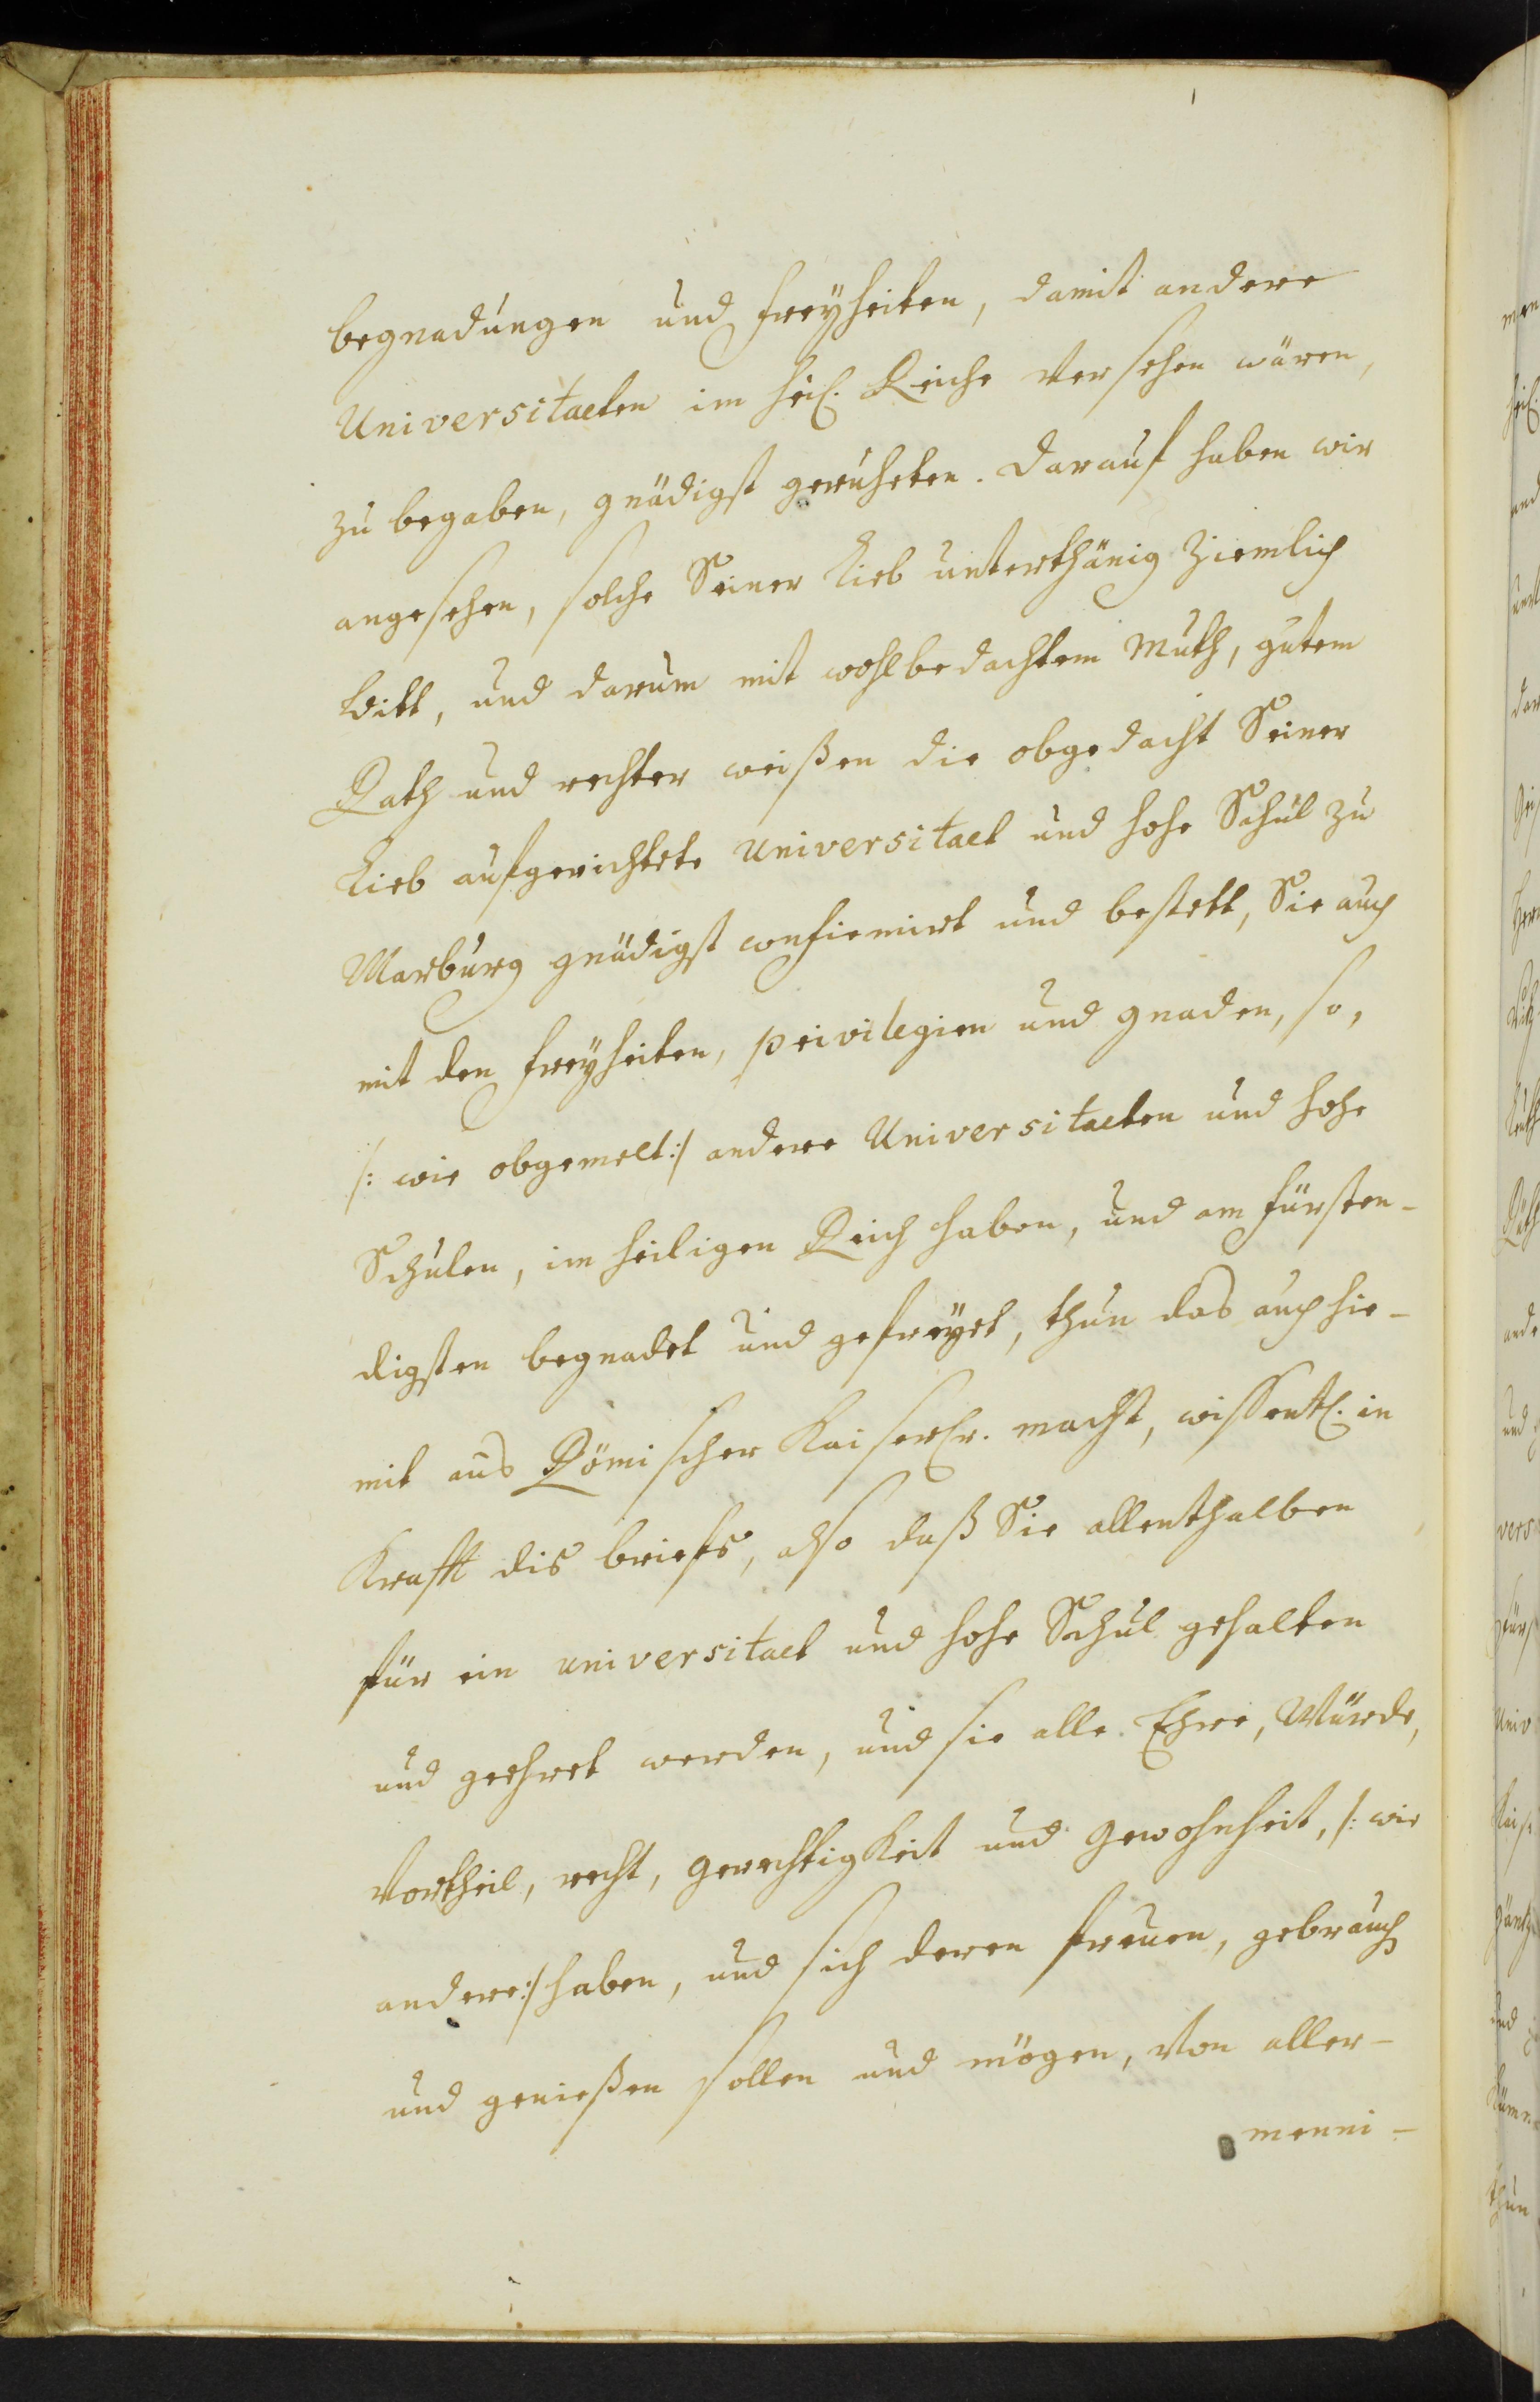 begnadungen und freyheiten, damit andere
Universitaeten im heil. Reiche versehen wären,
zu begaben, gnädigst geruheten. Darauf haben wir
angesehen, solche Seiner Lieb unterthänig ziemlich
bitt, und darum mit wohlbedachtem Muth, gutem
Rath und rechter weißen die obgedacht Seiner
Lieb aufgerichtete Universitaet und hohe Schul zu
Marburg gnädigst confirmirt und bestett, Sie auch
mit den freyheiten, privilegien und gnaden, so,
/: wie obgemelt:/ andere Universitaeten und hohe
Schulen, im heiligen Reich haben, und am fürsten-
digsten begnadet und gefreyet, thun das auch hie-
mit aus Römischer Kaiserlr. macht, wissentl. in
Krafft dis briefs, also daß Sie allenthalben
für ein universitaet und hohe Schul gehalten
und geehret werden, und sie alle Ehre, Würde,
Vortheil, recht, gerechtigkeit und gewohnheit, /: wie
andere:/ haben, und sich deren freuen, gebrauch
und genießen sollen und mögen, von aller-
menni-